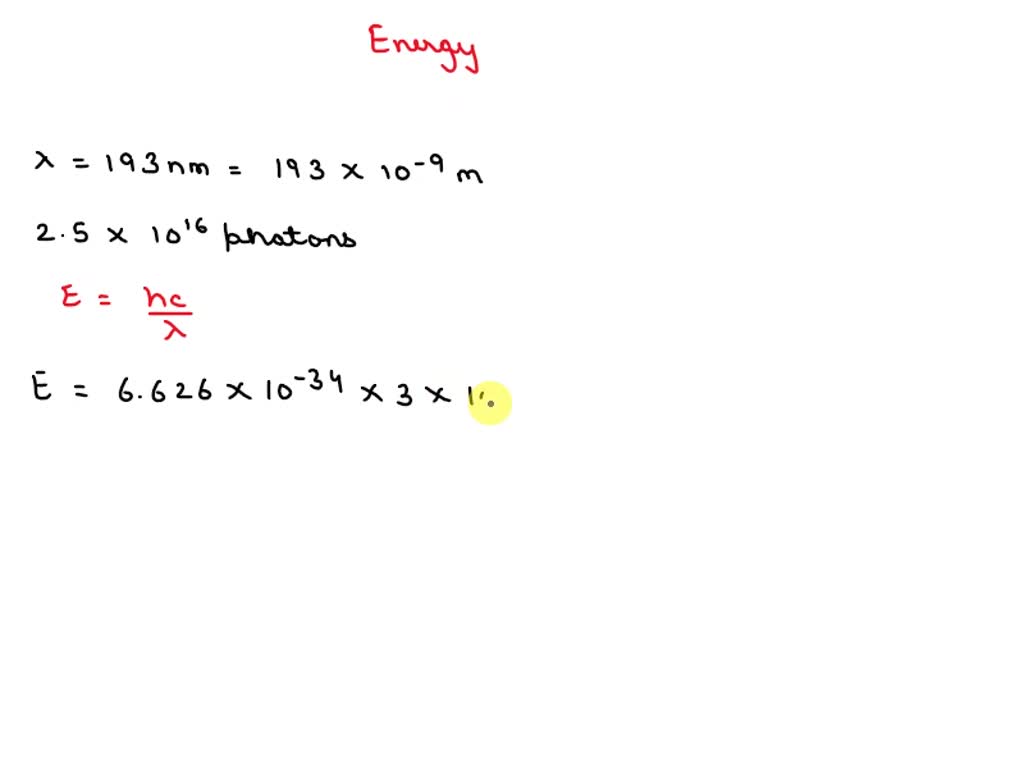 Energy
λ = 193 nm = 193 × 10⁻⁹ m
2.5 × 10¹⁶ photons
E = hc/λ
E = 6.626 × 10⁻³⁴ × 3 × 1